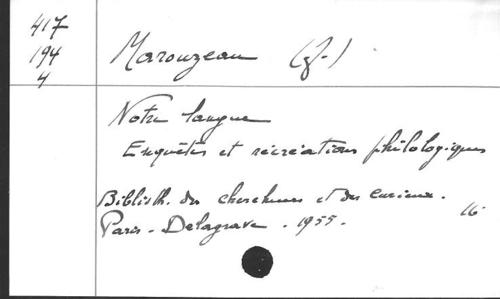 417
194
4
Marouzeau (J.)
Notre langue
Enquêtes et récréations philologiques
Biblioth. des chercheurs et des curieux.
Paris - Delagrave - 1955. 16°